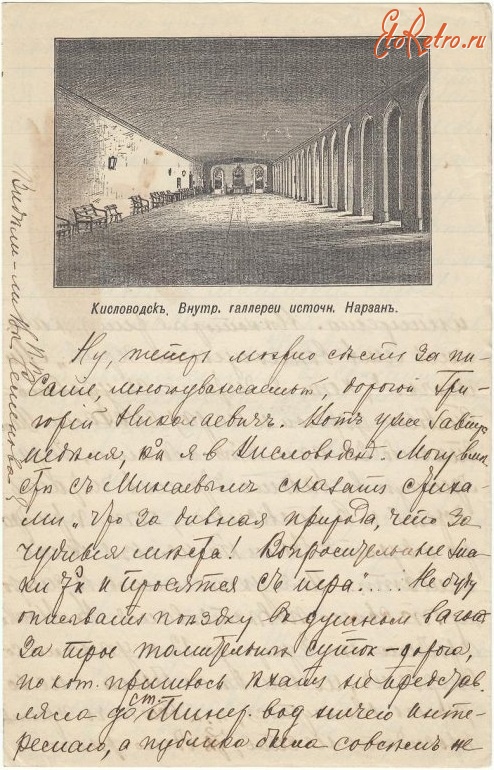 EtoRetro.ru
Кисловодскъ. Внутр. галлереи источн. Нарзанъ.
Видѣли-ли Вы Семенова?
Ну, теперь можно сѣсть за пи-
саніе, многоуважаемый, дорогой Гри-
горій Николаевичъ. Вотъ уже завтра
недѣля, как я в Кисловодскѣ. Могу вмѣ-
стѣ съ Минаевымъ сказать стиха-
ми „что за дивная природа, что за
чудныя мѣста! Вопросительные зна-
ки так и просятся съ пера"..... Не буду
описывать поѣздку въ душном вагонѣ
за трое томительных сутокъ - дорога,
по кот. пришлось ѣхать не представ-
ляла до ст. Минер. вод ничего инте-
реснаго, а публика была совсѣмъ не